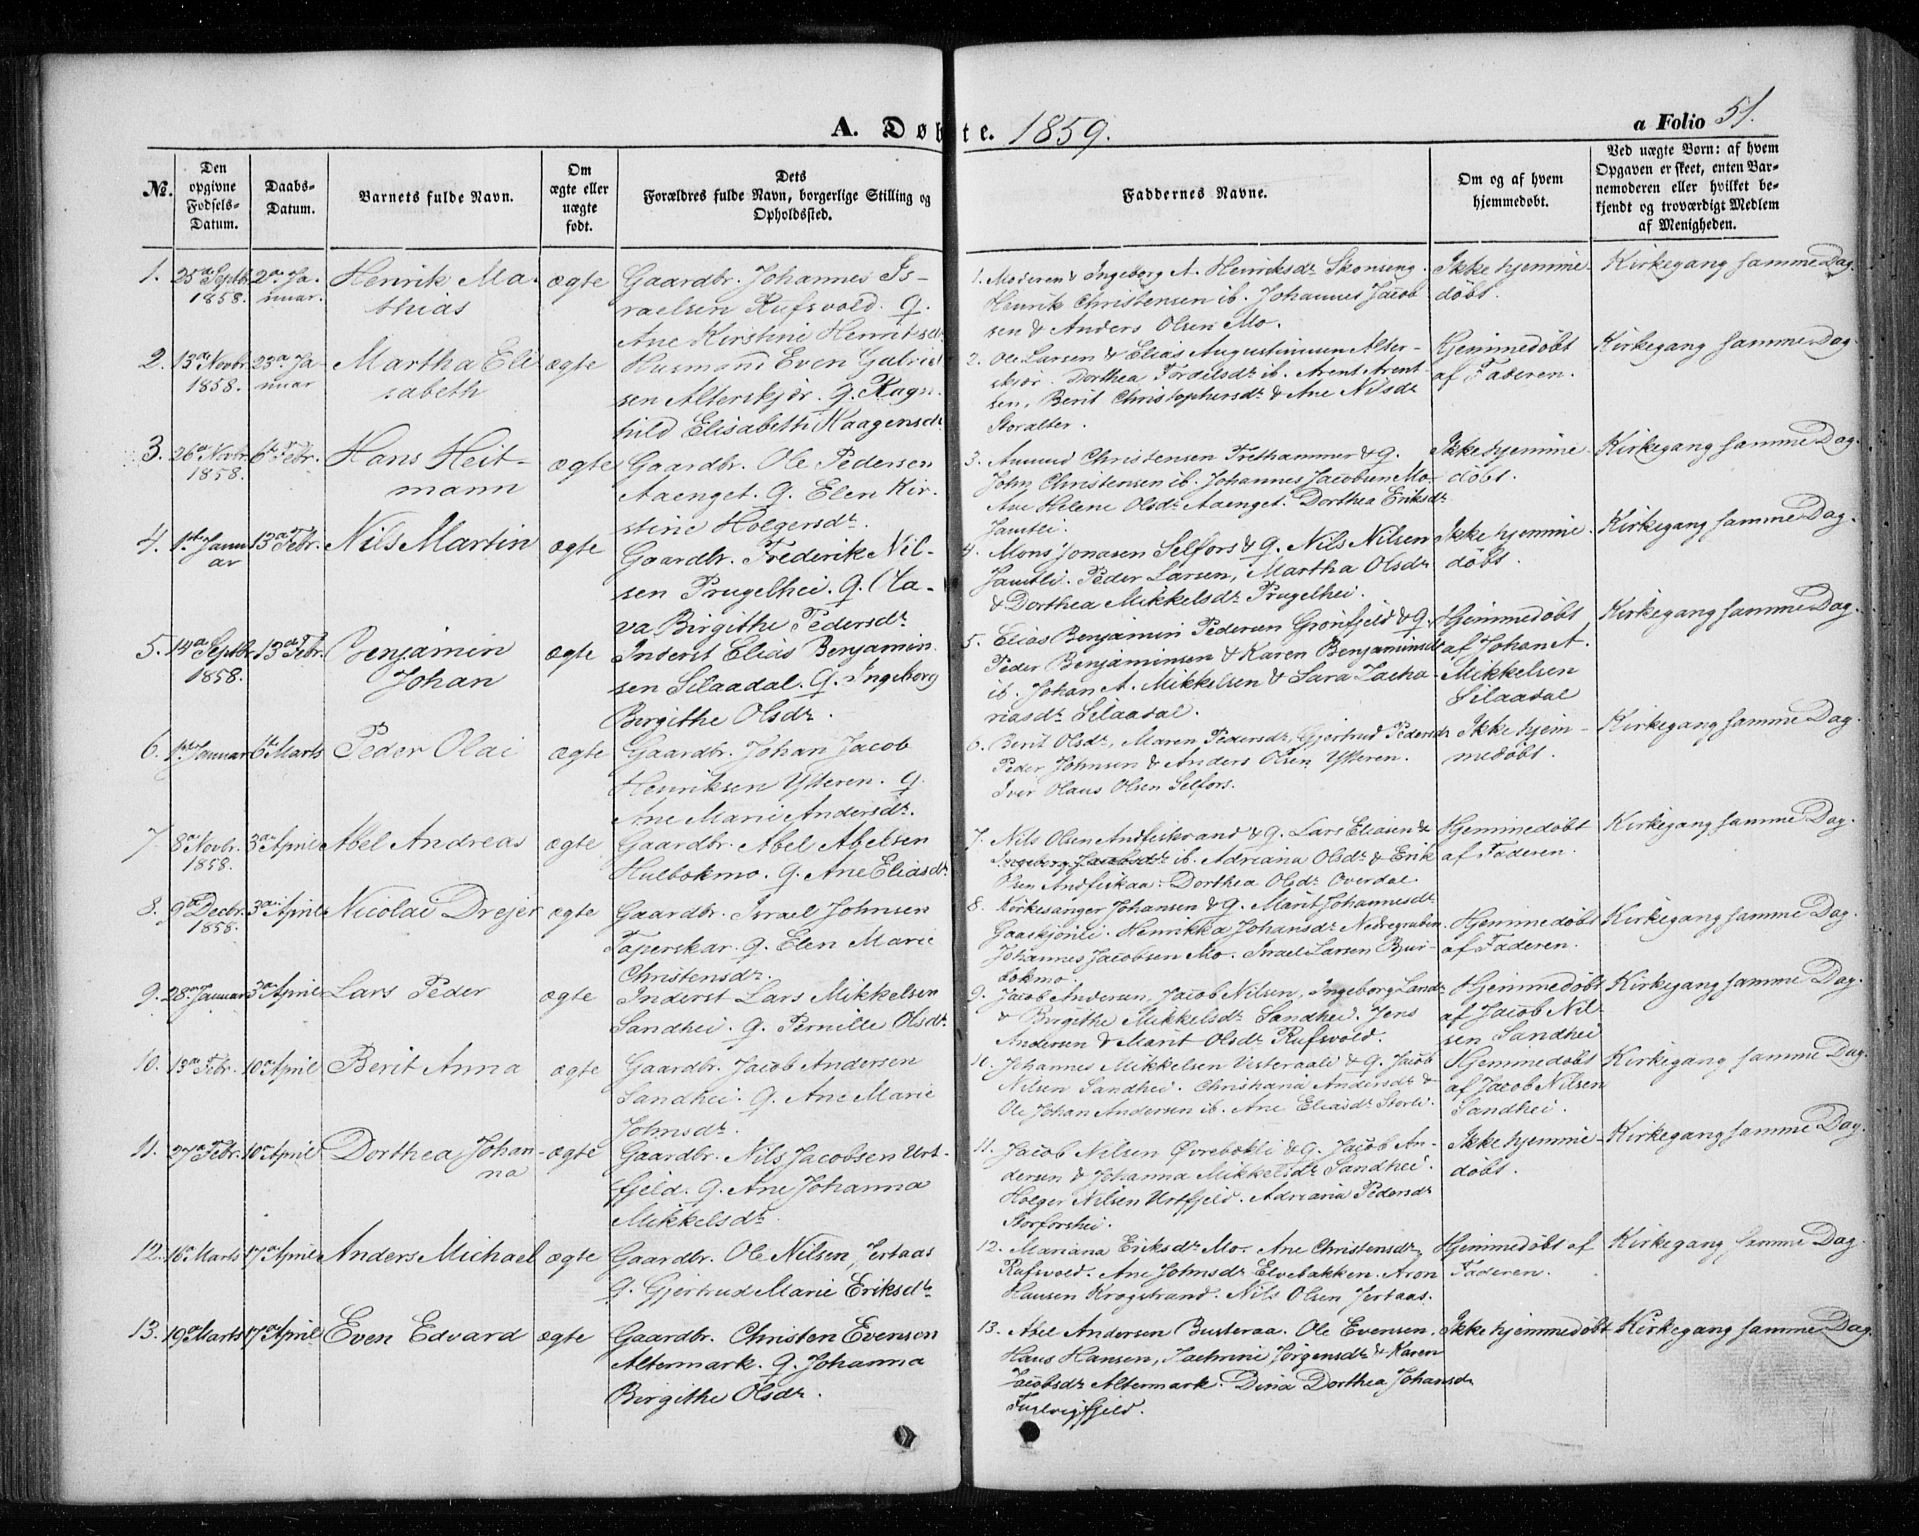 A. Døbte. 1859.
a Folio 51.
No.
Den opgivne Fødsels-Datum.
Daabs-Datum.
Barnets fulde Navn.
Om ægte eller uægte født.
Dets Forældres fulde Navn, borgerlige Stilling og Opholdssted.
Faddernes Navne.
Om og af hvem hjemmedøbt.
Ved uægte Børn: af hvem Opgaven er skeet, enten Barnemoderen eller hvilket bekjendt og troværdigt Medlem af Menigheden.
1. 25de Septbr 1858. 2den Januar. Henrik Mathias ægte
Gaardbr. Johannes Is-
raelsen Rufsvold. Q.
Ane Kirstine Henriksdr
1. Moderen & Ingeborg A. Henriksdr Skonseng.
Henrik Christensen ib. Johannes Jacob
sen & Anders Olsen Mo.
Ikke hjemme-
døbt.
Kirkegang samme Dag.
2. 13de Novbr 1858. 23de Januar Martha Elisabeth ægte
Husmand Even Gabriel
sen Alterskjær. Q. Ragn
hild Elisabeth Haagensdr
2. Ole Larsen & Elias Augustinusen Alter-
skjær. Dorthea Tordelsdr ib. Arent Arent-
sen, Berit Christophersdr & Ane Nilsdr
Storalter.
Hjemmedøbt
af Faderen.
Kirkegang samme Dag
3. 26de Novbr 1858. 6te Febr. Hans Heitmann ægte
Gaardbr. Ole Pedersen
Aaenget. Q. Elen Kir-
stine Holgersdr.
3. Amund Christensen Frethammer & Q.
John Christensen ib. Johannes Jacobsen Mo.
Ane Helene Olsdr Aaenget. Dorthea Eriksdr
Jamtli.
Ikke hjemme-
døbt.
Kirkegang samme Dag.
4. 1ste Januar 13de Febr. Nils Martin ægte
Gaardbr. Frederik Nil-
sen Prugelhei. Q. Cla-
va Birgithe Pedersdr
4. Mons Jonasen Selfors & Q. Nils Nilsen
Jamtli. Peder Larsen, Martha Olsdr
& Dorthea Mikkelsdr Prugelhei.
Ikke hjemme-
døbt.
Kirkegang samme Dag.
5. 14de Septbr 1858. 13de Febr. Benjamin Johan ægte
Inderst Elias Benjamin
sen Silaadal. Q. Ingeborg
Birgithe Olsdr.
5. Elias Benjamin Pedersen Grønfjeld & Q.
Peder Benjaminsen & Karen Benjaminsdr
ib. Johan A. Mikkelsen & Sara Zacha-
riasdr Silaadal.
Hjemmedøbt
af Johan A.
Mikkelsen
Silaadal
Kirkegang samme Dag
6. 1ste Januar 6te Marts Peder Olai ægte
Gaardbr. Johan Jacob
Henriksen Ytteren. Q.
Ane Marie Andersdr.
6. Berit Olsdr, Maren Pedersdr, Gjertrud Pedersdr
Peder Johnsen & Anders Olsen Ytteren.
Iver Olaus Olsen Selfors.
Ikke hjem-
medøbt.
Kirkegang samme Dag.
7. 8de Novbr. 1858. 3de April Abel Andreas ægte
Gaardbr. Abel Abelsen
Hulbokmo. Q. Ane Eliasdr.
7. Nils Olsen Andfiskvand & Q. Lars Eliasen &
Ingeborg Jacobsdr ib. Adriana Olsdr & Erik
Olsen Andfiskaa. Dorthea Olsdr Overdal.
Hjemmedøbt
af Faderen.
Kirkegang samme Dag.
8. 9de Decbr. 1858. 3de April Nicolai Drejer ægte
Gaardbr. Israel Johnsen
Taperskar. Q. Elen Marie
Christensdr.
8. Kirkesanger Johansen & Q. Marit Johannesdr
Gaaskjønli. Henrikka Johansdr Nedregruben.
Johannes Jacobsen Mo. Israel Larsen Bjur-
bokmo.
Hjemmedøbt
af Faderen.
Kirkegang samme Dag.
9. 28de Januar 3de April Lars Peder ægte
Inderst Lars Mikkelsen
Sandhei. Q. Pernille Olsdr.
9. Jacob Andersen, Jacob Nilsen, Ingeborg Larsdr
& Birgithe Mikkelsdr Sandhei. Jens
Andersen & Marit Olsdr Rufsvold.
Hjemmedøbt
af Jacob Nil-
sen Sandhei
Kirkegang samme Dag.
10. 13de Febr. 10de April Berit Anna ægte
Gaardbr. Jacob Andersen
Sandhei. Q. Ane Marie
Johnsdr.
10. Johannes Mikkelsen Vesteraali & Q. Jacob
Nilsen Sandhei. Christiana Andersdr &
Ole Johan Andersen ib. Ane Eliasdr Storli.
Hjemmedøbt
af Jacob Nilsen
Sandhei.
Kirkegang samme Dag
11. 27de Febr. 10de April Dorthea Johanna ægte
Gaardbr. Nils Jacobsen Urt-
fjeld. Q. Ane Johanna
Mikkelsdr.
11. Jacob Nilsen Øvrebokli & Q. Jacob An-
dersen & Johanna Mikkelsdr Sandhei.
Holger Nilsen Urtfjeld. Adriana Pedersdr
Storforshei.
Ikke hjemme-
døbt.
Kirkegang samme Dag.
12. 16de Marts 17de April Anders Michael ægte
Gaardbr. Ole Nilsen Jerbaas
Q. Gjertrud Marie Eriksdr.
12. Mariana Eriksdr Mo. Ane Christensdr
Rufsvold. Ane Johnsdr Elvebakken. Aron
Hansen Krogstrand. Nils Olsen Jerbaas.
Hjemmedøbt af
Faderen.
Kirkegang samme Dag.
13. 19de Marts 17de April Even Edvard ægte
Gaardbr. Christen Evensen
Altermark. Q. Johanna
Birgithe Olsdr.
13. Abel Andersen Busteraa. Ole Evensen,
Hans Hansen, Jørgensdr & Karen
Jacobsdr Altermark. Dina Dorthea Johansdr
Ikke hjemmedøbt
Kirkegang samme Dag.